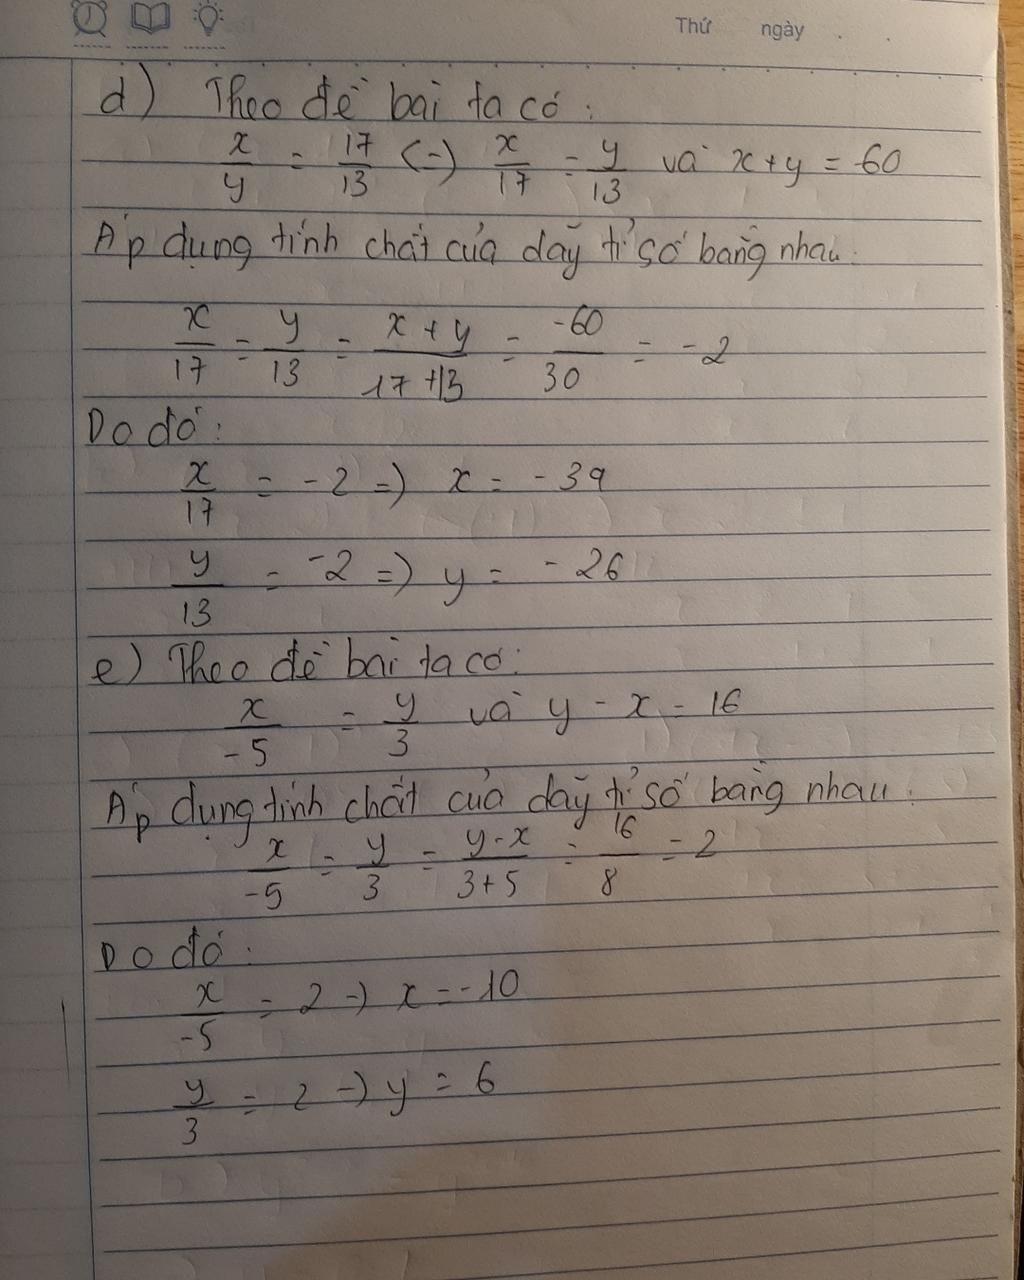 Thứ ngày . .
d) Theo đề bài ta có :
x/y = 17/13 (=) x/17 = y/13 và x+y = -60
Áp dụng tính chất của dãy tỉ số bằng nhau :
x/17 = y/13 = x + y/17 + 13 = -60/30 = -2
Do đó :
x/17 = -2 =) x = -39
y/13 = -2 =) y = -26
e) Theo đề bài ta có :
x/-5 = y/3 và y - x = 16
Áp dụng tính chất của dãy tỉ số bằng nhau :
x/-5 = y/3 = y-x/3+5 = 16/8 = 2
Do đó :
x/-5 = 2 =) x = -10
y/3 = 2 =) y = 6